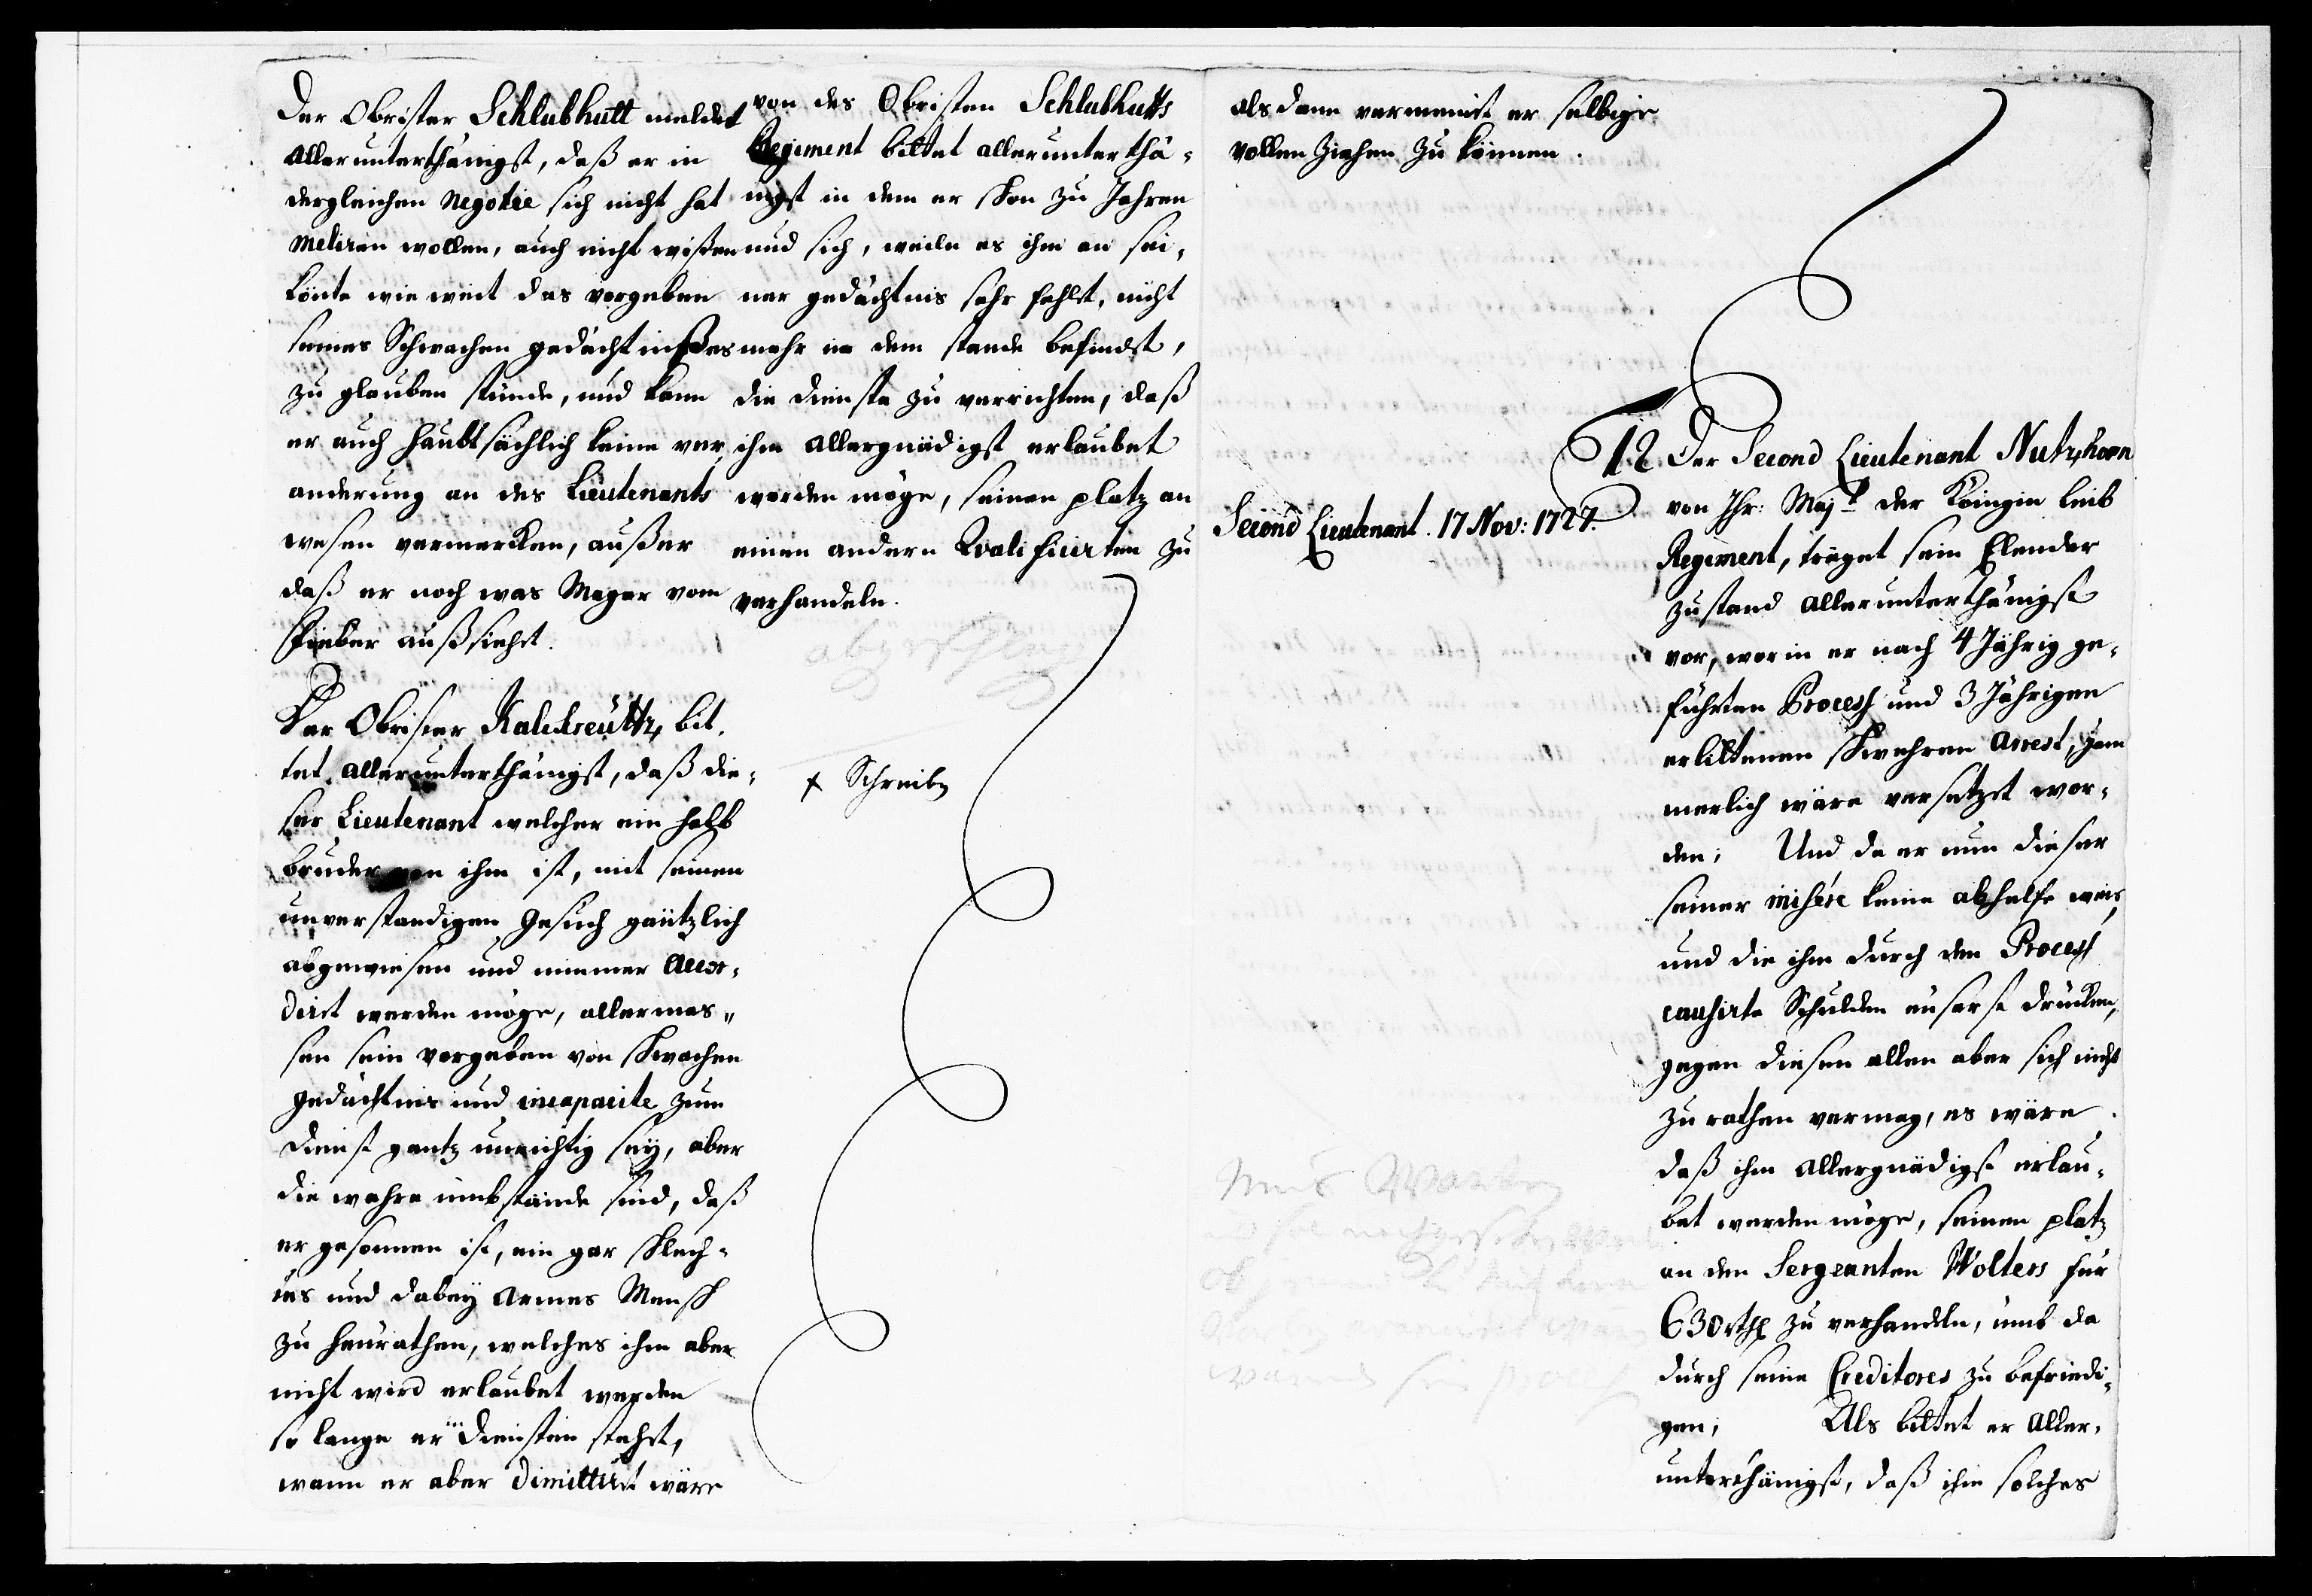 Der Obrister Schlubhutt meldet
allerunterthänigst, daß er in
dergleichen Negotie sich nicht hat
meliren wollen, auch nicht wißen
könte wie weit das vorgeben
seines Schwachen gedächtnißes
zu glauben stünde, und kann
er auch haubtsächlich keine ver,
anderung an des Lieutenants
wesen vermercken, außer
daß er noch was Mager vom
Fieber außsiehet.
Der Obrister Kalckreüttz, bit,
tet allerunterthänigst, daß die,
ser Lieutenant welcher ein halb
bruder von ihm ist, mit seinen
unverstandigen Gesuch gäntzlich
abgewiesen und nimmer accor,
dirt werden möge, allermas,,
sen sein vorgeben von schwachen
gedächtnis und incapacite zum
dienst gantz unrichtig seÿ, aber
die wahre umbstände sind, daß
er gesonnen ist, ein gar schlech,
tes und dabeÿ armes Mensch
zu heürathen, welches ihm aber
nicht wird erlaubet werden
so lange er in diensten stehet,
wann er aber dimittirt wäre
von des Obristen Schlubhutts
Regiment bittet allerunterthä,
nigst in dem er schon zu Jahren
und sich, weiln es ihm an sei,
ner gedächtnis sehr fehlet, nicht
mehr in dem stande befindet,
die dienste zu verrichten, daß
ihm allergnädigst erlaubet
werden möge, seinen platz an
einen andern Qvalificirten zu
verhandeln.
+ Schreiben
als dann vermeint er selbige
vollenziehen zu können.
Second Lieutenant. 17 Nov: 1727.
12. Der Second Lieutenant Nutzhorn
von Ihr: Maj:t der Königin leib
Regiment, träget sein Elender
zustand allerunterthänigst
vor, worin er nach 4 Jährig ge,
führten Process und 3 Jährigen
erlittenen schwehren Arrest, jam
merlich wäre versetzet wor,
den; Und da er nun dieser
seiner misére keine abhelfe weis,
und die ihm durch den Process
causirte Schulden äuserst drücken,
gegen diesen allen aber sich nicht
zu rathen vermag, es wäre
daß ihm allergnädigst erlau,
bet werden möge, seinen platz
an den Sergeanten Wolters für
630 rthl zu verhandeln, umb da
durch seine Creditores zu befriedi,
gen; Als bittet er aller,
unterthänigst, daß ihm solches